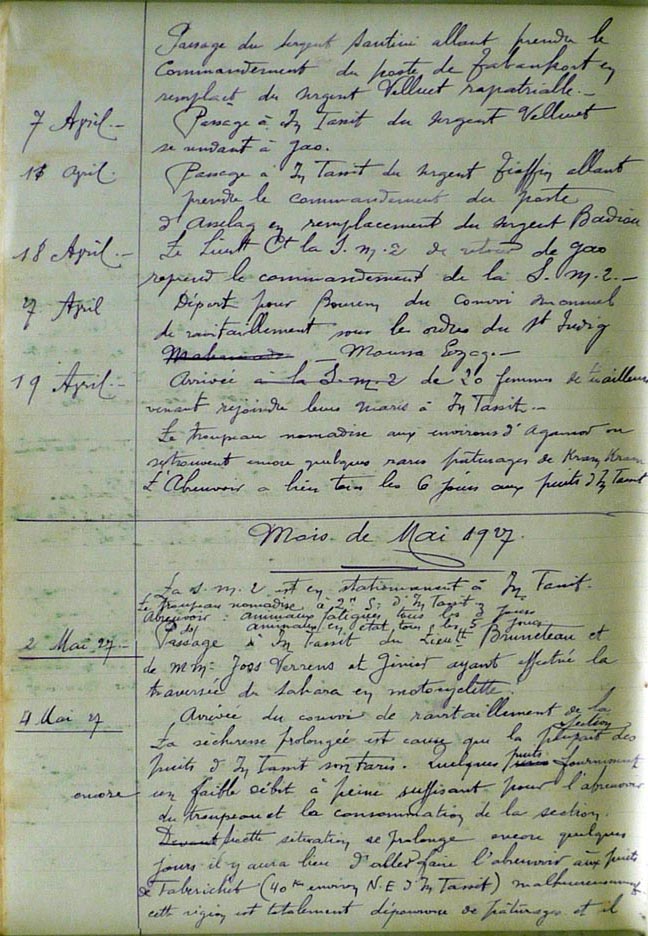 Passage du sergent Santini allant prendre le
Commandement du poste de Tabankort en
remplact du sergent Velluet rapatriable. -
7 April. - Passage à In Tassit du sergent Velluet
se rendant à Gao.
April. Passage à In Tassit du sergent allant
prendre le commandement du poste
d'Anselag en remplacement du sergent Badiou
18 April. - Le Lieutt Ct la S. M. 2 de retour de Gao
reprend le commandement de la S. M. 2. -
27 April Départ pour Bourem du Convoi mensuel
de ravitaillement sous les ordres du
- Moussa
19 April. - Arrivée à la S. M. 2 de 20 femmes de tirailleurs
venant rejoindre leurs maris à In Tassit. -
Le troupeau nomadise aux environs d' où
se trouvent encore quelques rares pâturages de Kram Kram
L'Abreuvoir a lieu tous les 6 jours aux puits d'In Tassit
Mois de Mai 1927.
La S. M. 2 est en stationnement à In Tassit.
Le troupeau nomadise à d'In Tassit
Abreuvoir : animaux fatigués tous les 3 jours
animaux en état tous les 5 jours
2 Mai 27 - Passage à In Tassit du Lieutt Bruneteau et
de MM. Joos Verrens et Génier ayant effectué la
traversée du Sahara en motocyclette.
4 Mai 27 Arrivée du convoi de ravitaillement de la
section
La sècheresse prolongée est cause que la plupart des
puits d'In Tassit sont taris. Quelques puits fournissent
encore un faible débit à peine suffisant pour l'abreuvoir
du troupeau et la consommation de la section.
Devant si cette situation se prolonge encore quelques
jours il y aura lieu d'aller faire l'abreuvoir aux puits
de Taberichit (40 km environ N.E d'In Tassit) malheureusement
cette région est totalement dépourvue de pâturages et il